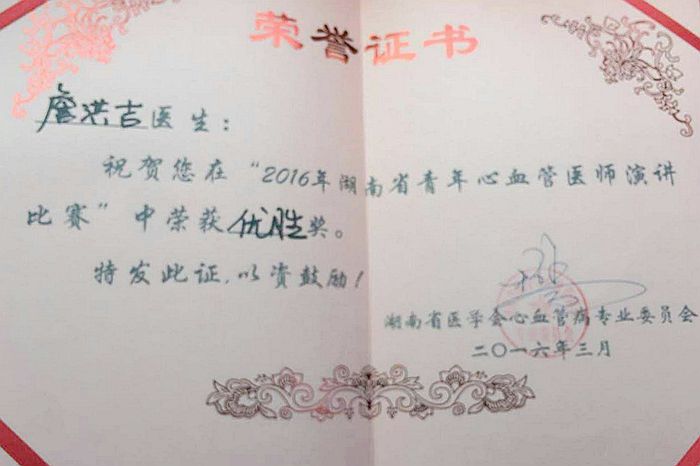 荣誉证书
唐洪吉医生：
祝贺您在“2016年湖南省青年心血管医师演讲
比赛”中荣获优胜奖。
特发此证，以资鼓励！
湖南省医学会心血管病专业委员会
二〇一六年三月